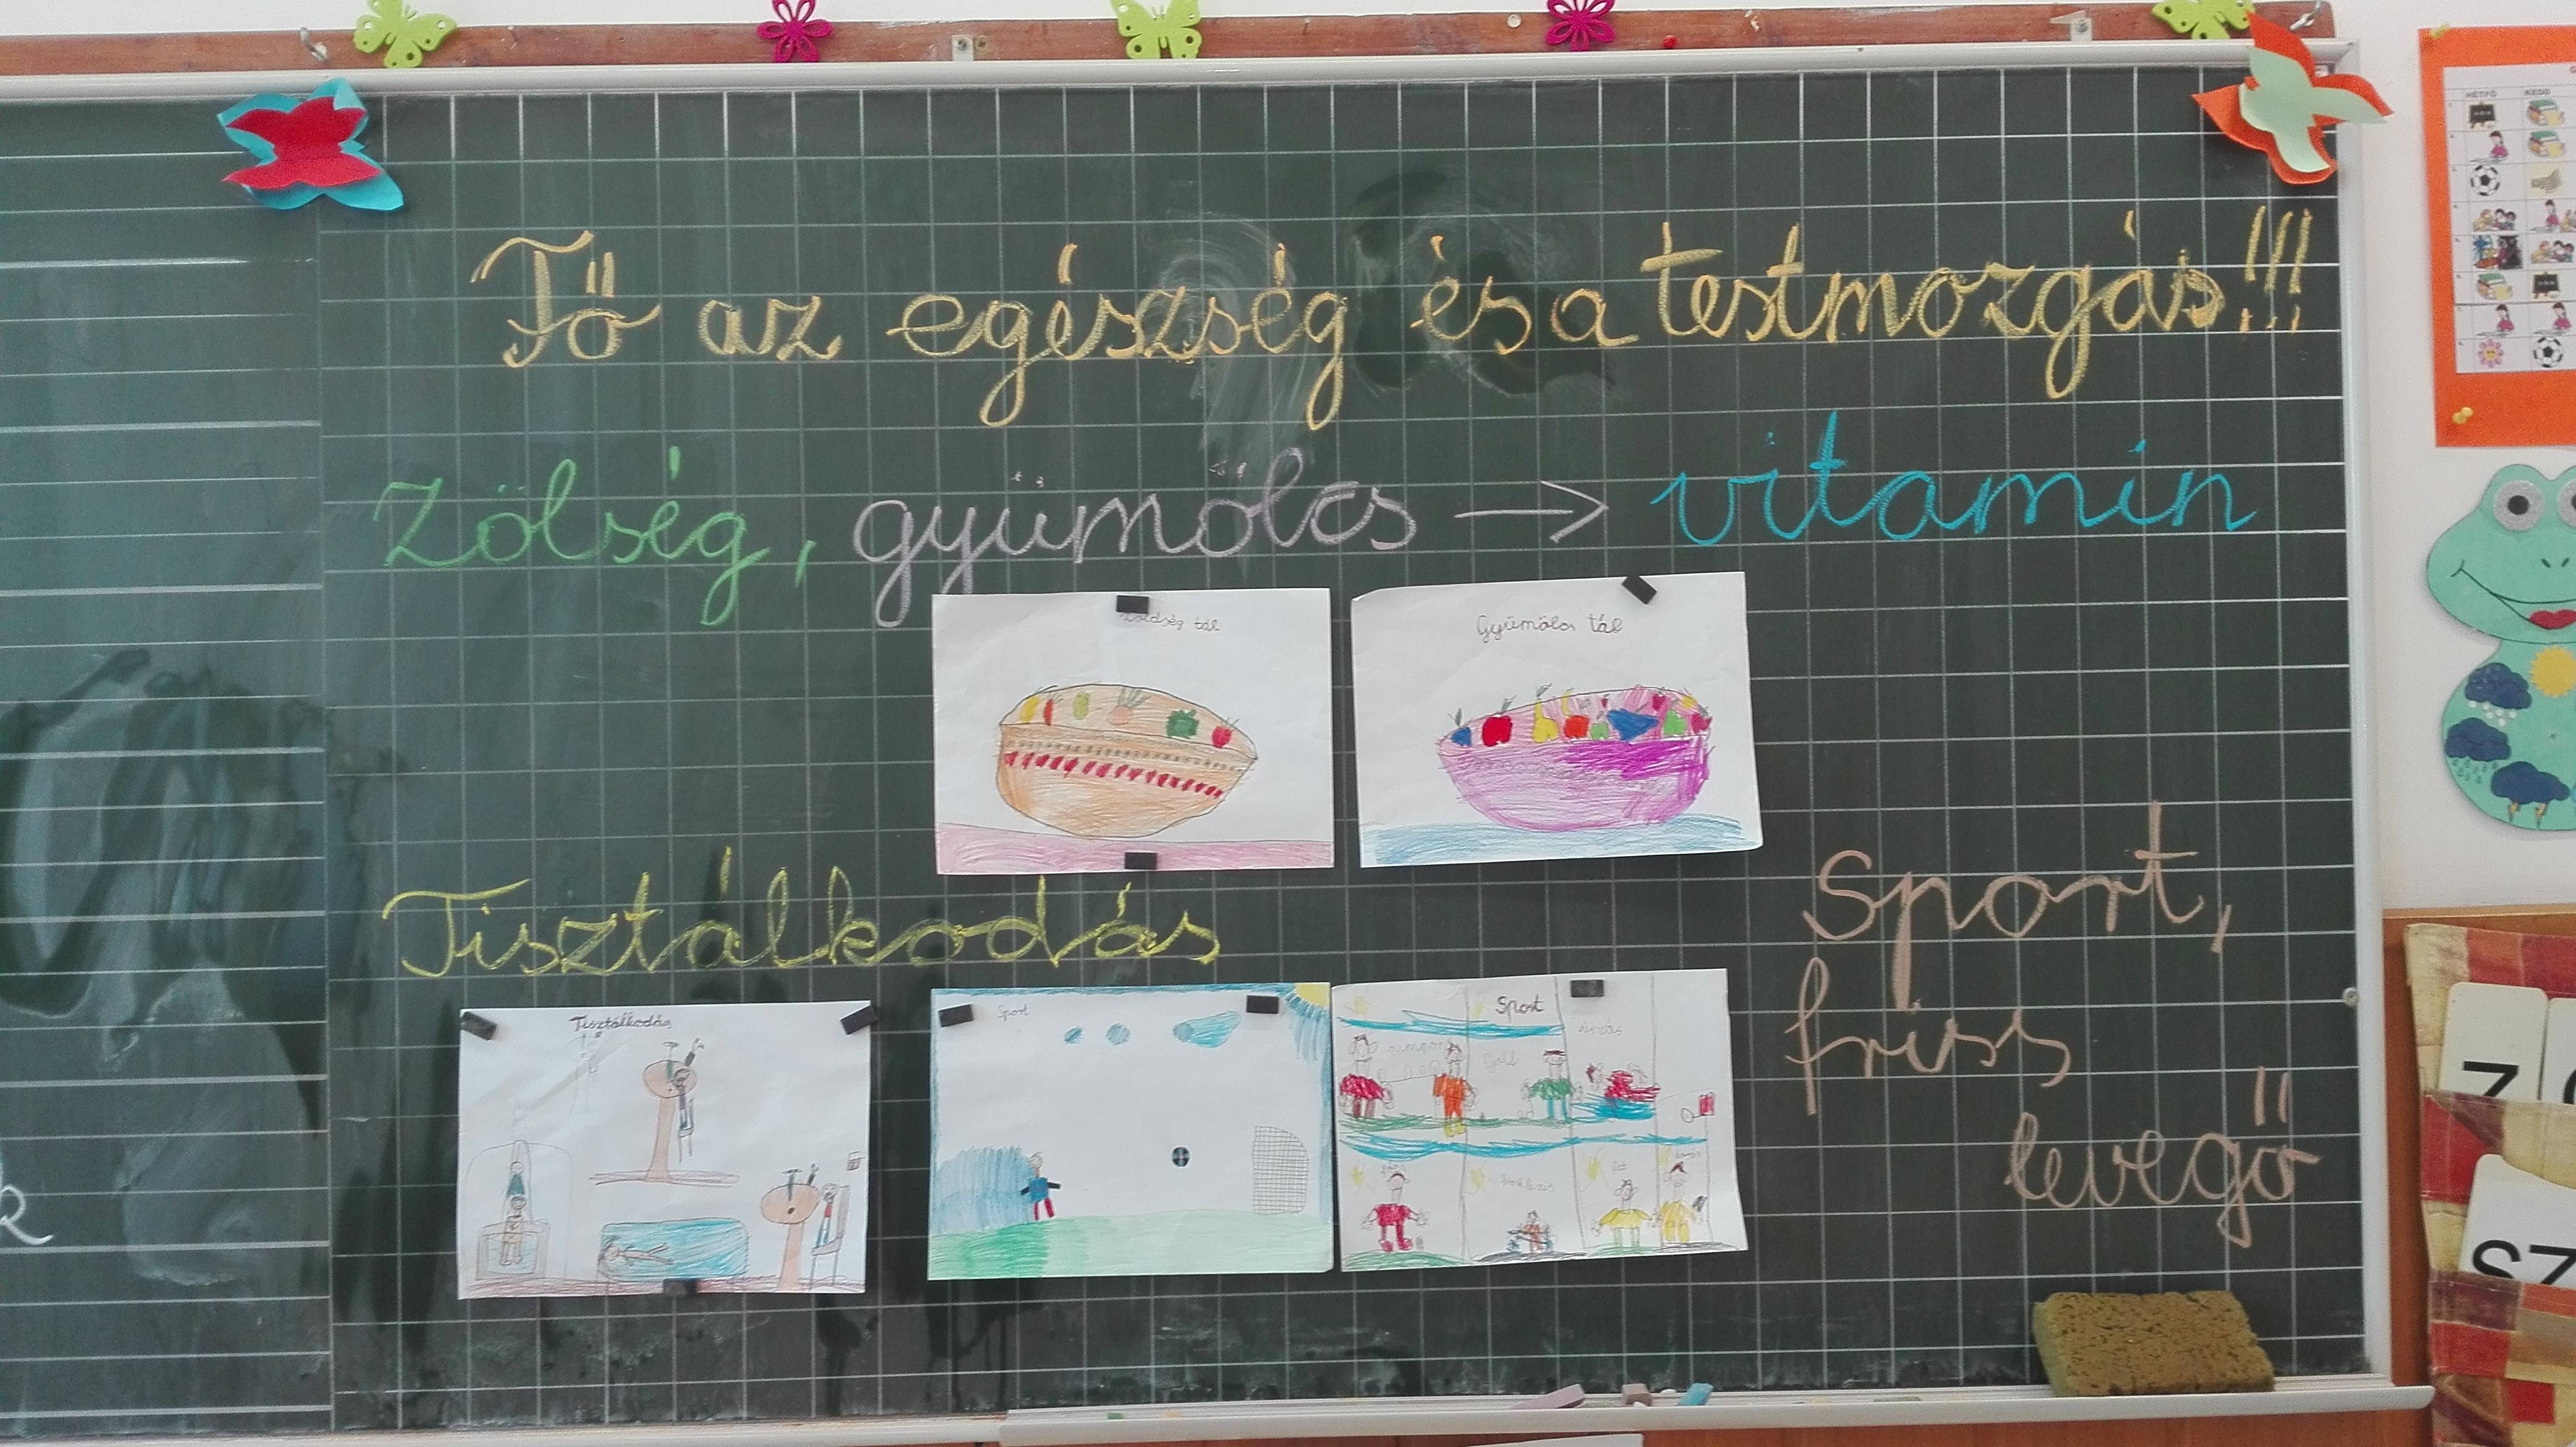 HÉTFŐ KEDD
Fő az egészség és a testmozgás!!!
Zölség, gyümölcs → vitamin
Zöldség tál
Gyümölcs tál
Tisztálkodás
Sport,
friss
levegő
Tisztálkodás
Sport
Sport
Golf
Z
SZ